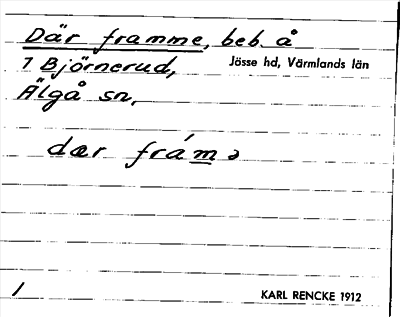 Där framme, beb. å
1 Björnerud, Jösse hd, Värmlands län
Älgå sn,
dær frám̲ə
1 KARL RENCKE 1912